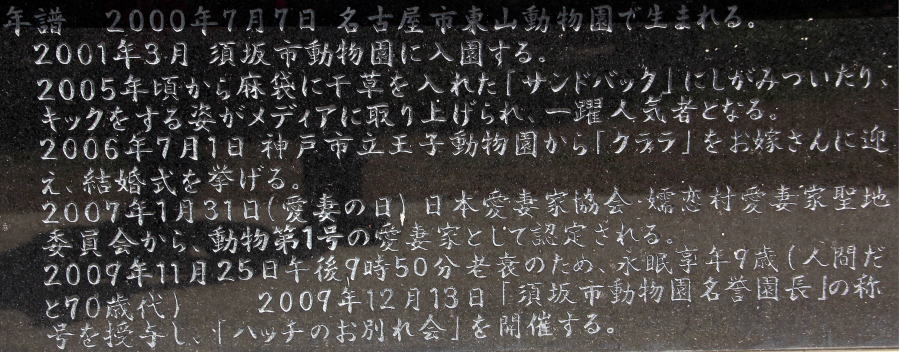 年譜　2000年7月7日 名古屋市東山動物園で生まれる。
2001年3月 須坂市動物園に入園する。
2005年頃から麻袋に干草を入れた「サンドバック」にしがみついたり、
キックをする姿がメディアに取り上げられ、一躍人気者となる。
2006年7月1日 神戸市立王子動物園から「クララ」をお嫁さんに迎
え、結婚式を挙げる。
2007年1月31日(愛妻の日) 日本愛妻家協会・嬬恋村愛妻家聖地
委員会から、動物第1号の愛妻家として認定される。
2009年11月25日午後9時50分老衰のため、永眠享年9歳(人間だ
と70歳代)　2009年12月13日「須坂市動物園名誉園長」の称
号を授与し、「ハッチのお別れ会」を開催する。